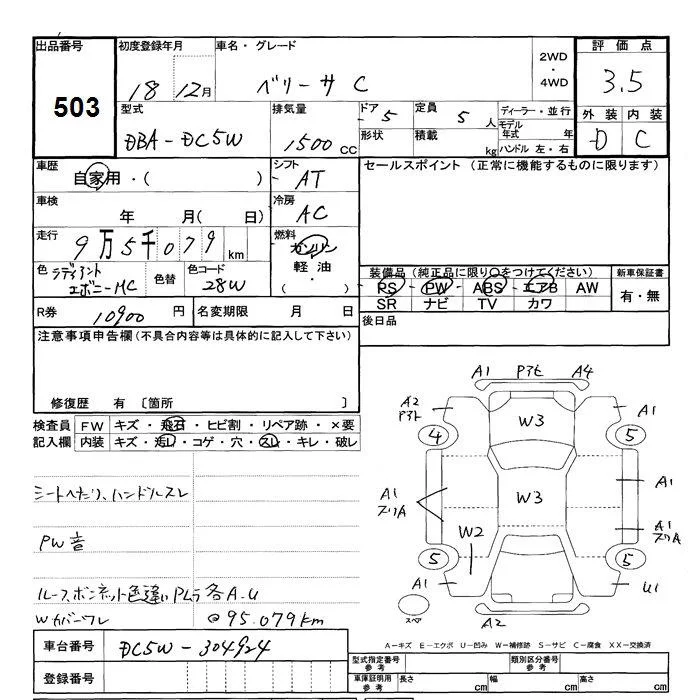 出品番号 初度登録年月 車名・グレード 2WD・4WD 評価点
503 18 12月 ベリーサ C 3.5
型式 排気量 ドア 5 定員 5人 ディーラー・並行 外装 内装
DBA-DC5W 1500 CC 形状 積載 kg モデル年式 年 D C
ハンドル 左・右
車歴 自家用・( ) シフト AT セールスポイント (正常に機能するものに限ります)
車検 年 月( 日) 冷房 AC
走行 9万5千079 km 燃料 ガソリン 軽油・( )
色 ラディアントエボニーMC 色替 色コード 28W
装備品(純正品に限り○をつけてください) 新車保証書
PS・PW・ABS・エアB AW 有・無
SR ナビ TV カワ
R券 10900円 名変期限 月 日 後日品
注意事項申告欄(不具合内容等は具体的に記入して下さい)
修復歴 有 〔箇所 〕
検査員 FW キズ・飛石・ヒビ割・リペア跡・×要
記入欄 内装 キズ・汚レ・コゲ・穴・スレ・キレ・破レ
シートへたり、ハンドルスレ
PW音
ルーフ、ボンネット色違い PLラ 各A.U
Wカバーワレ @95.079km
A1 Pアモ A4
A2 Pアト W3 A1
4 5
A1 スリA W3 A1
W2 A1 スリA
5 5
A1 U1
スペア A2
A-キズ E-エクボ U-凹み W-補修跡 S-サビ C-腐食 XX-交換済
車台番号 DC5W-304924
登録番号
型式指定番号 参考 類別区分番号 参考
車庫証明用 参考 長さ cm 幅 cm 高さ cm